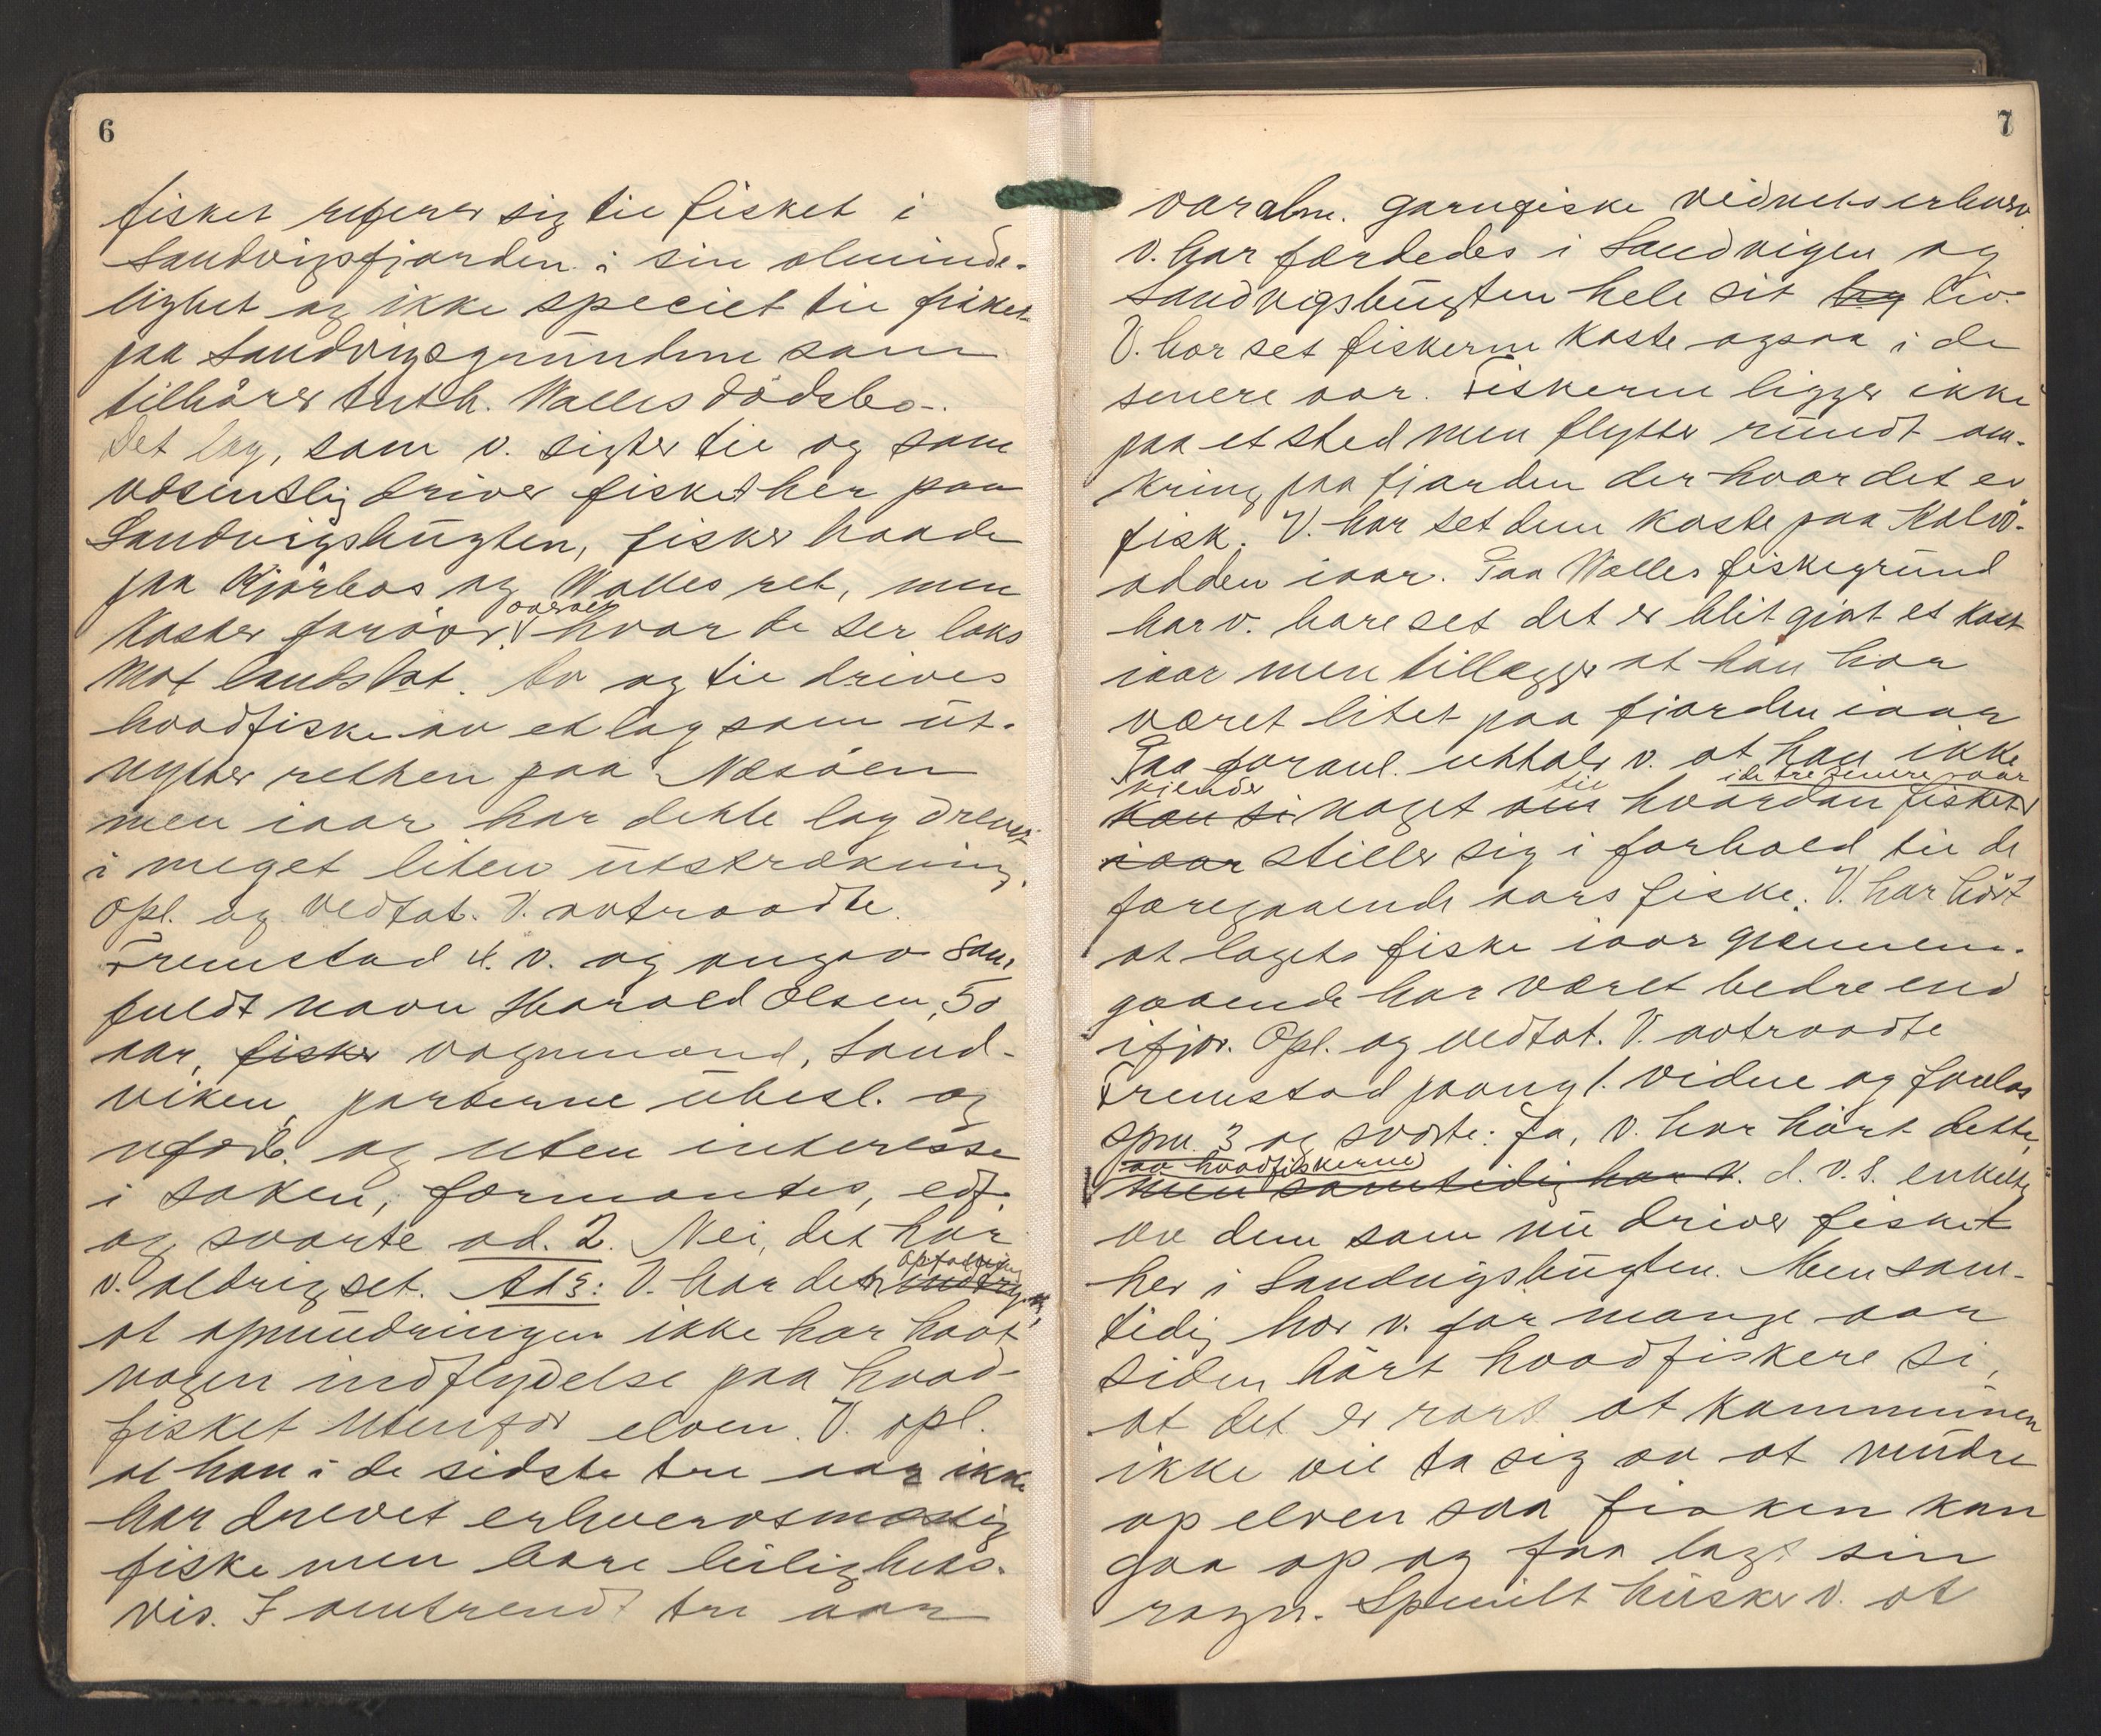 6
fisket referer sig til fisket i
Sandvigsfjorden i sin alminde-
lighet og ikke specielt til fisket
paa Sandvigsgrundene som
tilhører Anth. Walles dødsbo.
Det lag, som v. sigter til og som
væsentlig driver fisket her paa
Sandvigsbugten, fisker baade
paa Kjørbos og Walles ret, men
kaster forøvr. overalt hvor de ser laks
mot landslot. Av og til drives
hvadfiske av et lag som ut-
nytter retten paa Nesøen
men iaar har dette lag drevet
i meget liten utstrækning.
Opl. og vedtat. V. avtraadte.
Fremstod 4. v. og angav som
fuldt navn Harald Olsen, 50
aar, fisker vognmand, Sand-
viken, parterne ubesl. og
ufordv. og uten interesse
i saken, formantes, edf.
og svarte ad. 2. Nei, det har
v. aldrig set. Ad 3: V. har den opfatning indtryk,
at opmudringen ikke har havt
nogen indflydelse paa hvad-
fisket utenfor elven. V. opl.
at han i de sidste tre aar ikke
har drevet erhvervsmæssig
fiske men bare leiligheds-
vis. I omtrendt tre aar
7
var alm. garnfiske vidnets erhverv.
V. har færdedes i Sandvigen og
Sandvigsbugten hele sit liv.
V. har set fiskerne kaste ogsaa i de
senere aar. Fiskerne ligger ikke
paa et sted men flytter rundt om-
kring paa fjorden der hvor det er
fisk. V. har set dem kaste paa Kalvø-
odden iaar. Paa Walles fiskegrund
har v. bare set det er blit gjort et kast
iaar men tillægger at han har
været litet paa fjorden iaar
Paa foranl. uttaler v. at han ikke
kjender til i de tre senere aar
kan si noget om hvordan fisket
iaar stiller sig i forhold til de
foregaaende aars fiske. V. har hørt
at lagets fiske iaar gjennem-
gaaende har været bedre end
ifjor. Opl. og vedtat. V. avtraadte
Fremstod paany 1. vidne og forelas
spm. 3 og svarte: Ja, v. har hørt dette,
av hvadfiskerne
men samtidig har v. d. v. s. enkelte
av dem som nu driver fisket
her i Sandvigsbugten. Men sam-
tidig har v. for mange aar
siden hørt hvadfiskere si,
at det er rart at kommunen
ikke vil ta sig av at mudre
op elven saa fisken kan
gaa op og faa lagt sin
rogn. Specielt husker v. at